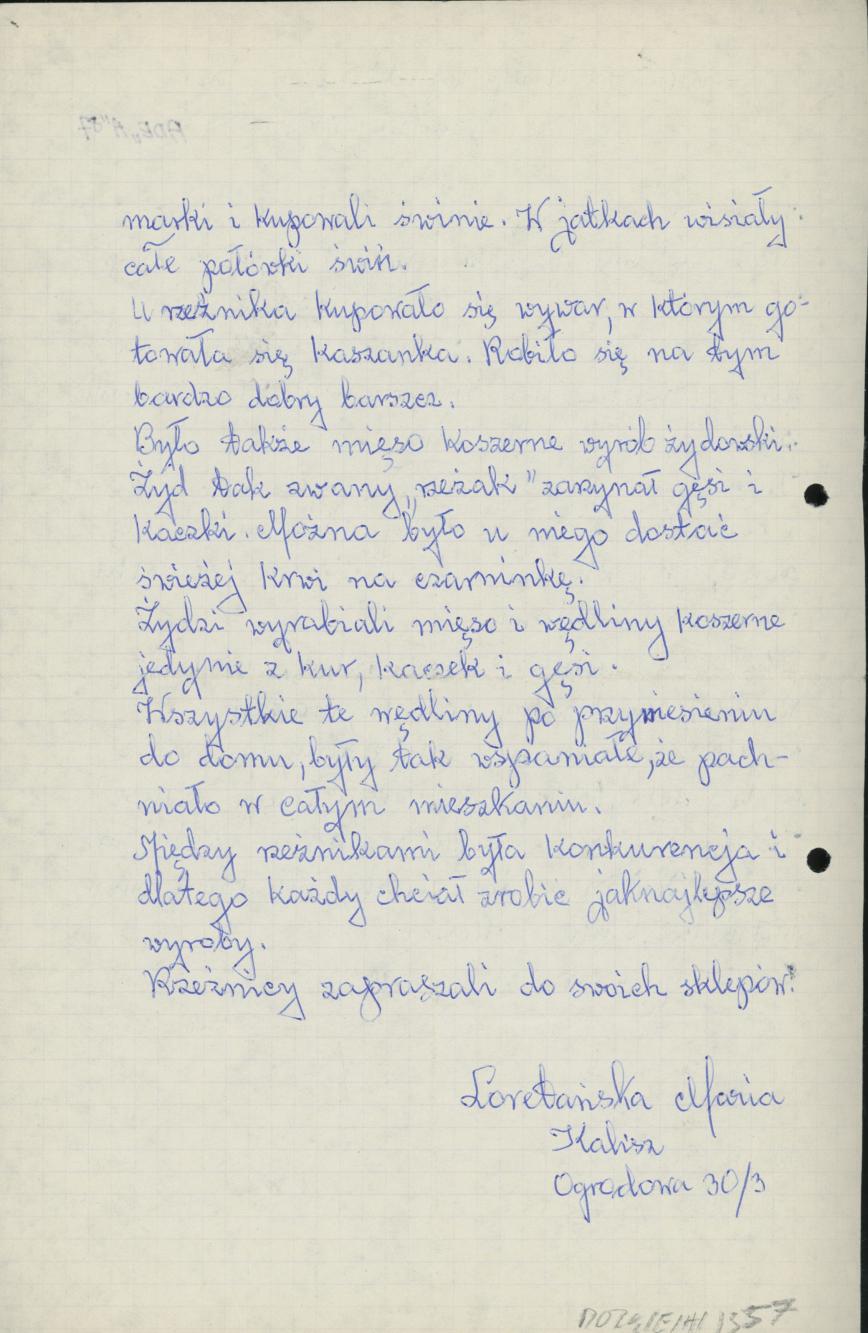 marki i kupowali świnie. W jatkach wisiały
całe połówki świń.
U rzeźnika kupowało się wywar, w którym go-
towała się kaszanka. Robiło się na tym
bardzo dobry barszcz.
Było także mięso koszerne wyrób żydowski.
Żyd tak zwany „rzeżak" zarzynał gęsi i
kaczki. Można było u niego dostać
świeżej krwi na czarninkę.
Żydzi wyrabiali mięso i wędliny koszerne
jedynie z kur, kaczek i gęsi.
Wszystkie te wędliny po przyniesieniu
do domu, były tak wspaniałe, że pach-
niało w całym mieszkaniu.
Między rzeźnikami była konkurencja i
dlatego każdy chciał zrobić jaknajlepsze
wyroby.
Rzeźnicy zapraszali do swoich sklepów.
Loretańska Maria
Kalisz
Ogrodowa 30/3
57